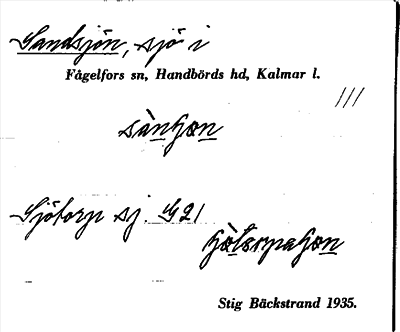 Sandsjön, sjö i
Fågelfors sn, Handbörds hd, Kalmar l.
Sjötorp sj. G21
Stig Bäckstrand 1935.